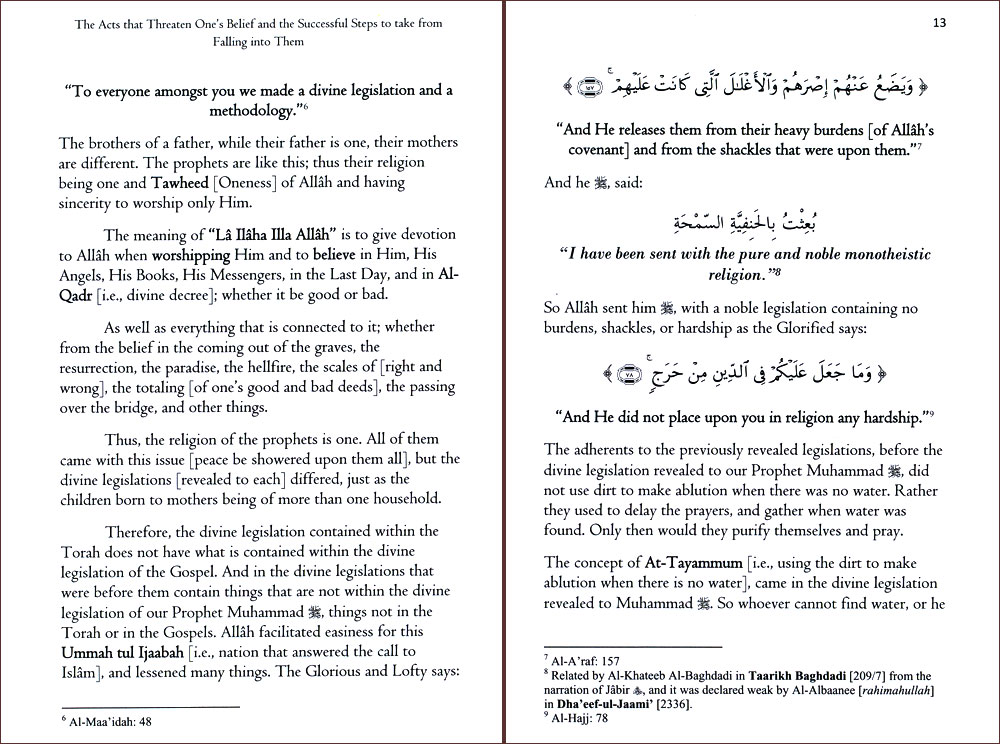 The Acts that Threaten One's Belief and the Successful Steps to take from
Falling into Them
"To everyone amongst you we made a divine legislation and a
methodology."6
The brothers of a father, while their father is one, their mothers
are different. The prophets are like this; thus their religion
being one and Tawheed [Oneness] of Allâh and having
sincerity to worship only Him.
The meaning of "Lâ Ilâha Illa Allâh" is to give devotion
to Allâh when worshipping Him and to believe in Him, His
Angels, His Books, His Messengers, in the Last Day, and in Al-
Qadr [i.e., divine decree]; whether it be good or bad.
As well as everything that is connected to it; whether
from the belief in the coming out of the graves, the
resurrection, the paradise, the hellfire, the scales of [right and
wrong], the totaling [of one's good and bad deeds], the passing
over the bridge, and other things.
Thus, the religion of the prophets is one. All of them
came with this issue [peace be showered upon them all], but the
divine legislations [revealed to each] differed, just as the
children born to mothers being of more than one household.
Therefore, the divine legislation contained within the
Torah does not have what is contained within the divine
legislation of the Gospel. And in the divine legislations that
were before them contain things that are not within the divine
legislation of our Prophet Muhammad ﷺ, things not in the
Torah or in the Gospels. Allâh facilitated easiness for this
Ummah tul Ijaabah [i.e., nation that answered the call to
Islâm], and lessened many things. The Glorious and Lofty says:
6 Al-Maa'idah: 48
13
﴿ وَيَضَعُ عَنْهُمْ إِصْرَهُمْ وَٱلْأَغْلَـٰلَ ٱلَّتِى كَانَتْ عَلَيْهِمْ ۚ ١٥٧ ﴾
"And He releases them from their heavy burdens [of Allâh's
covenant] and from the shackles that were upon them."7
And he ﷺ, said:
بُعِثْتُ بِالحَنِفِيَّةِ السَّمْحَةِ
"I have been sent with the pure and noble monotheistic
religion."8
So Allâh sent him ﷺ, with a noble legislation containing no
burdens, shackles, or hardship as the Glorified says:
﴿ وَمَا جَعَلَ عَلَيْكُمْ فِى ٱلدِّينِ مِنْ حَرَجٍ ۚ ٧٨ ﴾
"And He did not place upon you in religion any hardship."9
The adherents to the previously revealed legislations, before the
divine legislation revealed to our Prophet Muhammad ﷺ, did
not use dirt to make ablution when there was no water. Rather
they used to delay the prayers, and gather when water was
found. Only then would they purify themselves and pray.
The concept of At-Tayammum [i.e., using the dirt to make
ablution when there is no water], came in the divine legislation
revealed to Muhammad ﷺ. So whoever cannot find water, or he
7 Al-A'raf: 157
8 Related by Al-Khateeb Al-Baghdadi in Taarikh Baghdadi [209/7] from the
narration of Jâbir, and it was declared weak by Al-Albaanee [rahimahullah]
in Dha'eef-ul-Jaami' [2336].
9 Al-Hajj: 78